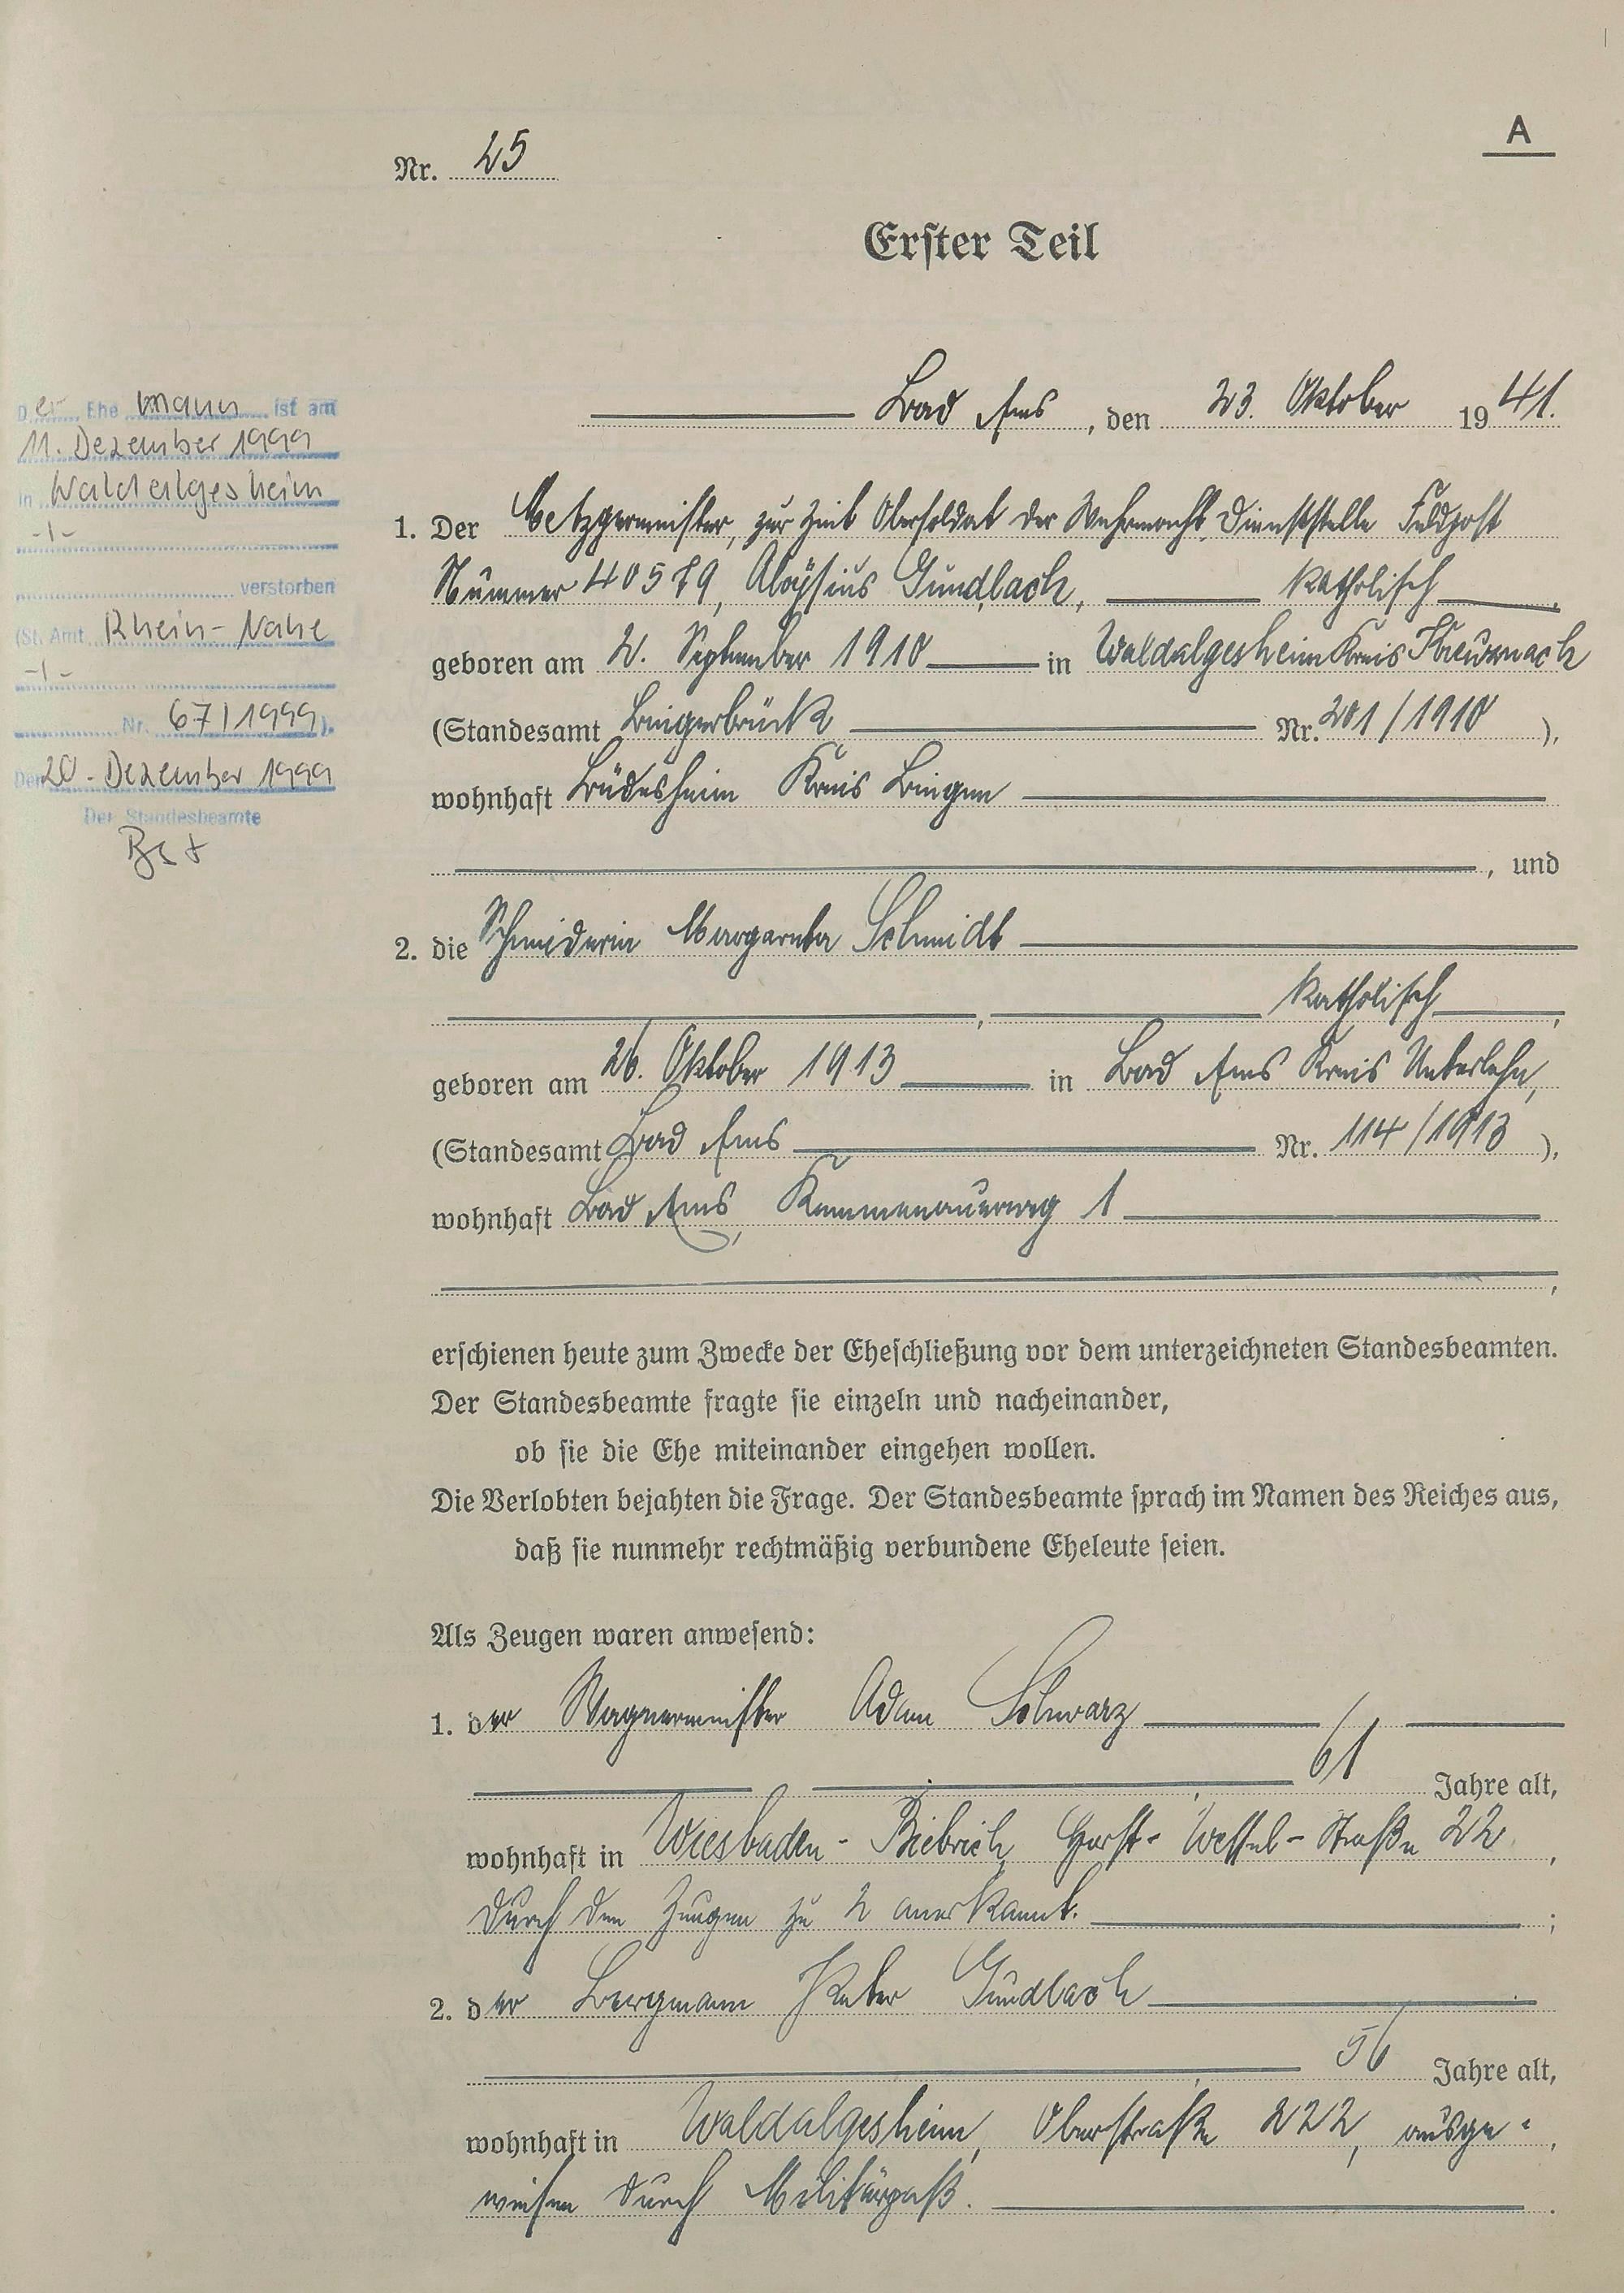 A
Nr. 25
Erster Teil
Bad Ems, den 23. Oktober 1941.
Der Ehemann ist am
11. Dezember 1999
in Waldalgesheim
-/-
verstorben
(St. Amt Rhein-Nahe
-/-
Nr. 67/1999).
Den 20. Dezember 1999
Der Standesbeamte
1. Der Metzgermeister, zur Zeit Obersoldat der Wehrmacht, Dienststelle Feldpost
Nummer 40579, Aloÿsius Gundlach, katholisch,
geboren am 2. September 1910 in Waldalgesheim Kreis Kreuznach
(Standesamt Bingerbrück Nr. 201/1910),
wohnhaft Büdesheim Kreis Bingen
, und
2. die Schneiderin Margareta Schmidt
, katholisch,
geboren am 26. Oktober 1913 in Bad Ems Kreis Unterlahn,
(Standesamt Bad Ems Nr. 114/1913),
wohnhaft Bad Ems, Kemmenauerweg 1
,
erschienen heute zum Zwecke der Eheschließung vor dem unterzeichneten Standesbeamten.
Der Standesbeamte fragte sie einzeln und nacheinander,
ob sie die Ehe miteinander eingehen wollen.
Die Verlobten bejahten die Frage. Der Standesbeamte sprach im Namen des Reiches aus,
daß sie nunmehr rechtmäßig verbundene Eheleute seien.
Als Zeugen waren anwesend:
1. der Wagnermeister Adam Schwarz
61 Jahre alt,
wohnhaft in Wiesbaden-Biebrich, Horst-Wessel-Straße 22,
durch den Zeugen zu 2 anerkannt. ;
2. der Bergmann Peter Gundlach
56 Jahre alt,
wohnhaft in Waldalgesheim, Oberstraße 222, ausge-,
wiesen durch Militärpaß. .